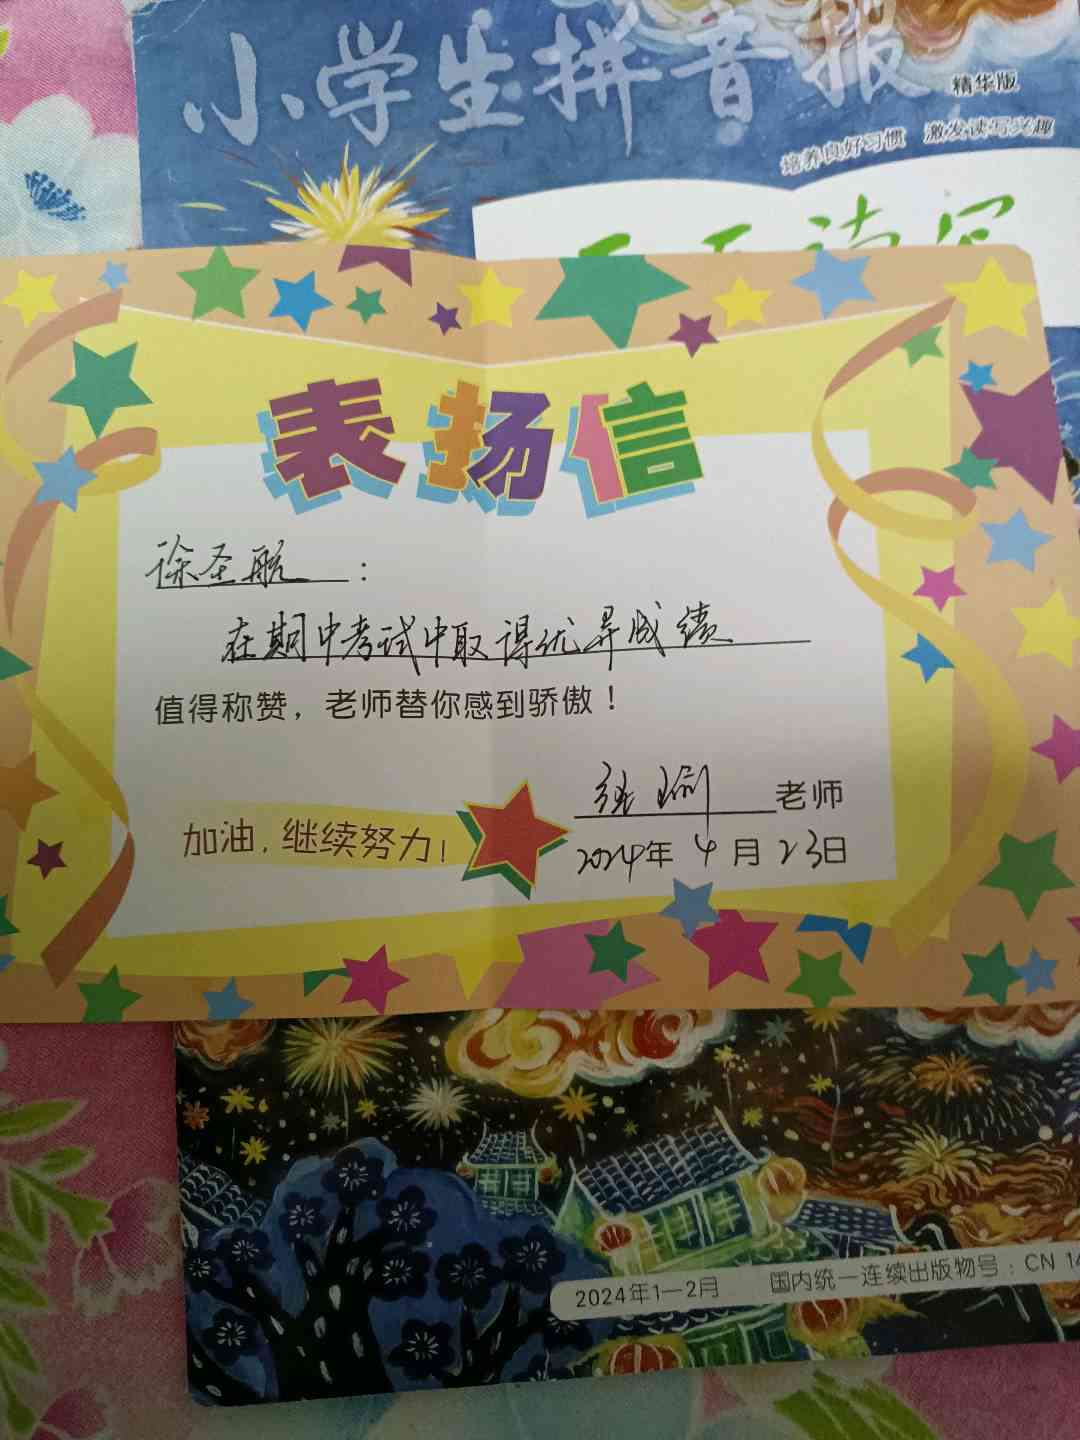 小学生拼音报
精华版
培养良好习惯 激发读写兴趣
天天读写
表扬信
徐圣航：
在期中考试中取得优异成绩
值得称赞，老师替你感到骄傲！
老师
加油，继续努力！
2024年4月23日
2024年1—2月 国内统一连续出版物号：CN 14